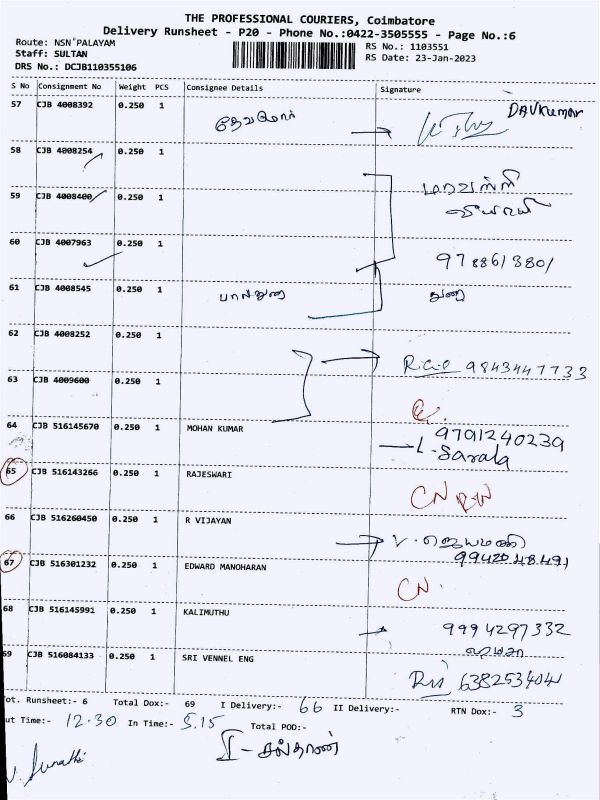 THE PROFESSIONAL COURIERS, Coimbatore
Delivery Runsheet - P20 - Phone No.:0422-3505555 - Page No.:6
Route: NSN PALAYAM
RS No.: 1103551
Staff: SULTAN
RS Date: 23-Jan-2023
DRS No.: DCJB110355106
S No Consignment No Weight PCS Consignee Details Signature
57 CJB 4008392 0.250 1 DAVKumar
58 CJB 4008254 0.250 1
59 CJB 4008400 0.250 1
60 CJB 4007963 0.250 1
61 CJB 4008545 0.250 1 பாலதுரை துரை
62 CJB 4008252 0.250 1
9843447733
63 CJB 4009600 0.250 1
64 CJB 516145670 0.250 1 MOHAN KUMAR 9701240239
L. Sarala
65 CJB 516143266 0.250 1 RAJESWARI
CN
66 CJB 516260450 0.250 1 R VIJAYAN
67 CJB 516301232 0.250 1 EDWARD MANOHARAN
CN.
68 CJB 516145991 0.250 1 KALIMUTHU
9994297332
69 CJB 516084133 0.250 1 SRI VENNEL ENG
Tot. Runsheet:- 6 Total Dox:- 69 I Delivery:- 66 II Delivery:- RTN Dox:- 3
Out Time:- 12.30 In Time:- 5.15 Total POD:-